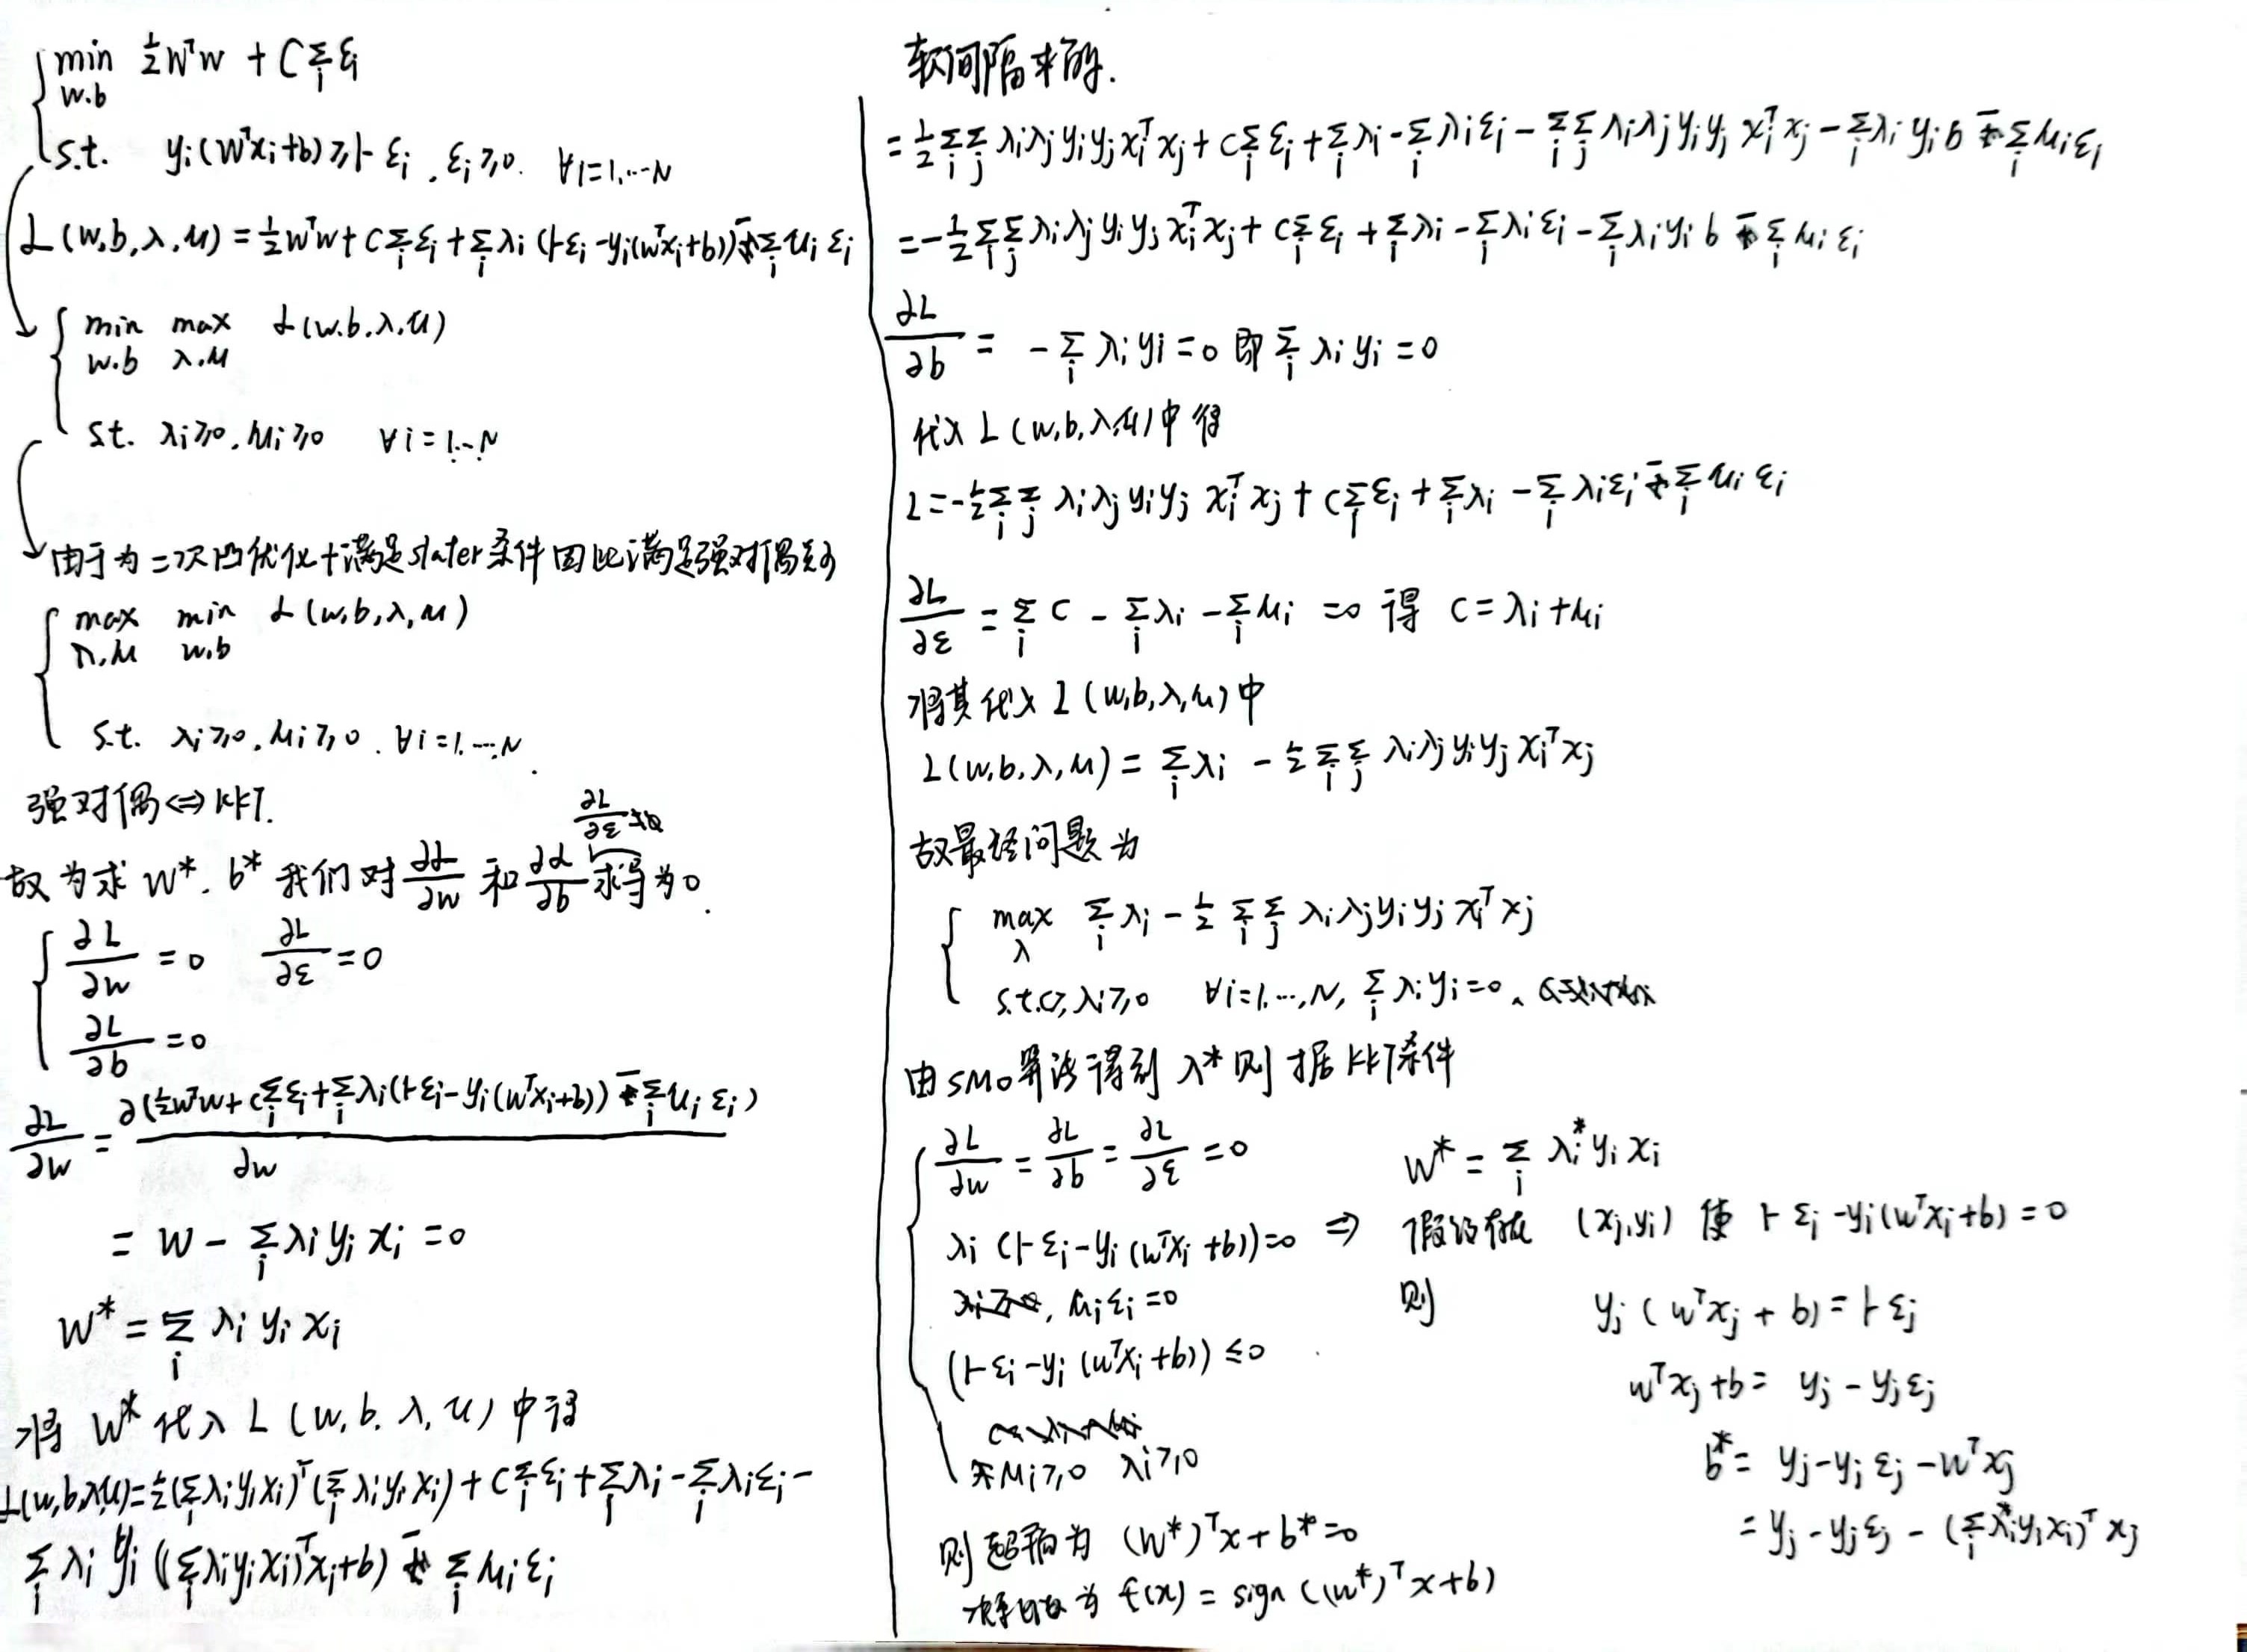 min ½WᵀW + C∑ᵢ εᵢ
w.b
s.t. yᵢ(Wᵀxᵢ+b) ≥ 1-εᵢ , εᵢ≥0. ∀i=1,…N
L(w,b,λ,μ) = ½wᵀw + C∑ᵢ εᵢ + ∑ᵢ λᵢ(1-εᵢ-yᵢ(wᵀxᵢ+b)) - ∑ᵢ μᵢ εᵢ
min max L(w.b.λ.μ)
w.b λ.μ
s.t. λᵢ≥0, μᵢ≥0 ∀i=1…N
由于为二次凸优化+满足slater条件因此满足强对偶关系
max min L(w,b,λ,μ)
λ.μ w.b
s.t. λᵢ≥0, μᵢ≥0. ∀i=1.…N.
强对偶⇔KKT.
∂L/∂ε
故为求 W*. b* 我们对 ∂L/∂w 和 ∂L/∂b 求导为0.
∂L/∂w = 0 ∂L/∂ε = 0
∂L/∂b = 0
∂L/∂w = ∂(½wᵀw + C∑ᵢ εᵢ + ∑ᵢ λᵢ(1-εᵢ-yᵢ(wᵀxᵢ+b)) - ∑ᵢ μᵢ εᵢ) / ∂w
= W - ∑ᵢ λᵢ yᵢ xᵢ = 0
W* = ∑ᵢ λᵢ yᵢ xᵢ
将 W* 代入 L(w,b,λ,μ) 中得
L(w,b,λ,μ) = ½(∑ᵢ λᵢyᵢxᵢ)ᵀ(∑ᵢ λᵢyᵢxᵢ) + C∑ᵢ εᵢ + ∑ᵢ λᵢ - ∑ᵢ λᵢεᵢ -
∑ᵢ λᵢ yᵢ((∑ᵢ λᵢyᵢxᵢ)ᵀxᵢ+b) - ∑ᵢ μᵢεᵢ
软间隔求解.
= ½∑ᵢ∑ⱼ λᵢλⱼ yᵢyⱼ xᵢᵀxⱼ + C∑ᵢ εᵢ + ∑ᵢ λᵢ - ∑ᵢ λᵢεᵢ - ∑ᵢ∑ⱼ λᵢλⱼ yᵢyⱼ xᵢᵀxⱼ - ∑ᵢ λᵢ yᵢ b - ∑ᵢ μᵢεᵢ
= -½∑ᵢ∑ⱼ λᵢλⱼ yᵢyⱼ xᵢᵀxⱼ + C∑ᵢ εᵢ + ∑ᵢ λᵢ - ∑ᵢ λᵢεᵢ - ∑ᵢ λᵢyᵢ b - ∑ᵢ μᵢεᵢ
∂L/∂b = -∑ᵢ λᵢyᵢ = 0 即 ∑ᵢ λᵢyᵢ = 0
代入 L(w,b,λ,μ)中得
L = -½∑ᵢ∑ⱼ λᵢλⱼ yᵢyⱼ xᵢᵀxⱼ + C∑ᵢ εᵢ + ∑ᵢ λᵢ - ∑ᵢ λᵢεᵢ - ∑ᵢ μᵢεᵢ
∂L/∂ε = ∑ᵢ C - ∑ᵢ λᵢ - ∑ᵢ μᵢ = 0 得 C = λᵢ+μᵢ
将其代入 L(w,b,λ,μ)中
L(w,b,λ,μ) = ∑ᵢ λᵢ - ½∑ᵢ∑ⱼ λᵢλⱼ yᵢyⱼ xᵢᵀxⱼ
故最终问题为
max ∑ᵢ λᵢ - ½∑ᵢ∑ⱼ λᵢλⱼyᵢyⱼ xᵢᵀxⱼ
λ
s.t. C≥λᵢ≥0 ∀i=1,…,N, ∑ᵢ λᵢyᵢ=0.
由SMO算法得到 λ* 则据KKT条件
∂L/∂w = ∂L/∂b = ∂L/∂ε = 0
λᵢ(1-εᵢ-yᵢ(wᵀxᵢ+b))=0 ⇒
μᵢεᵢ=0
(1-εᵢ-yᵢ(wᵀxᵢ+b)) ≤0
μᵢ≥0 λᵢ≥0
W* = ∑ᵢ λᵢ* yᵢ xᵢ
假设存在 (xⱼ,yⱼ) 使 1-εⱼ-yⱼ(wᵀxⱼ+b)=0
则 yⱼ(wᵀxⱼ+b) = 1-εⱼ
wᵀxⱼ+b = yⱼ - yⱼεⱼ
b* = yⱼ-yⱼεⱼ-wᵀxⱼ
= yⱼ-yⱼεⱼ - (∑ᵢ λᵢ*yᵢxᵢ)ᵀxⱼ
则超平面为 (w*)ᵀx+b*=0
决策函数为 f(x) = sign((w*)ᵀx+b)